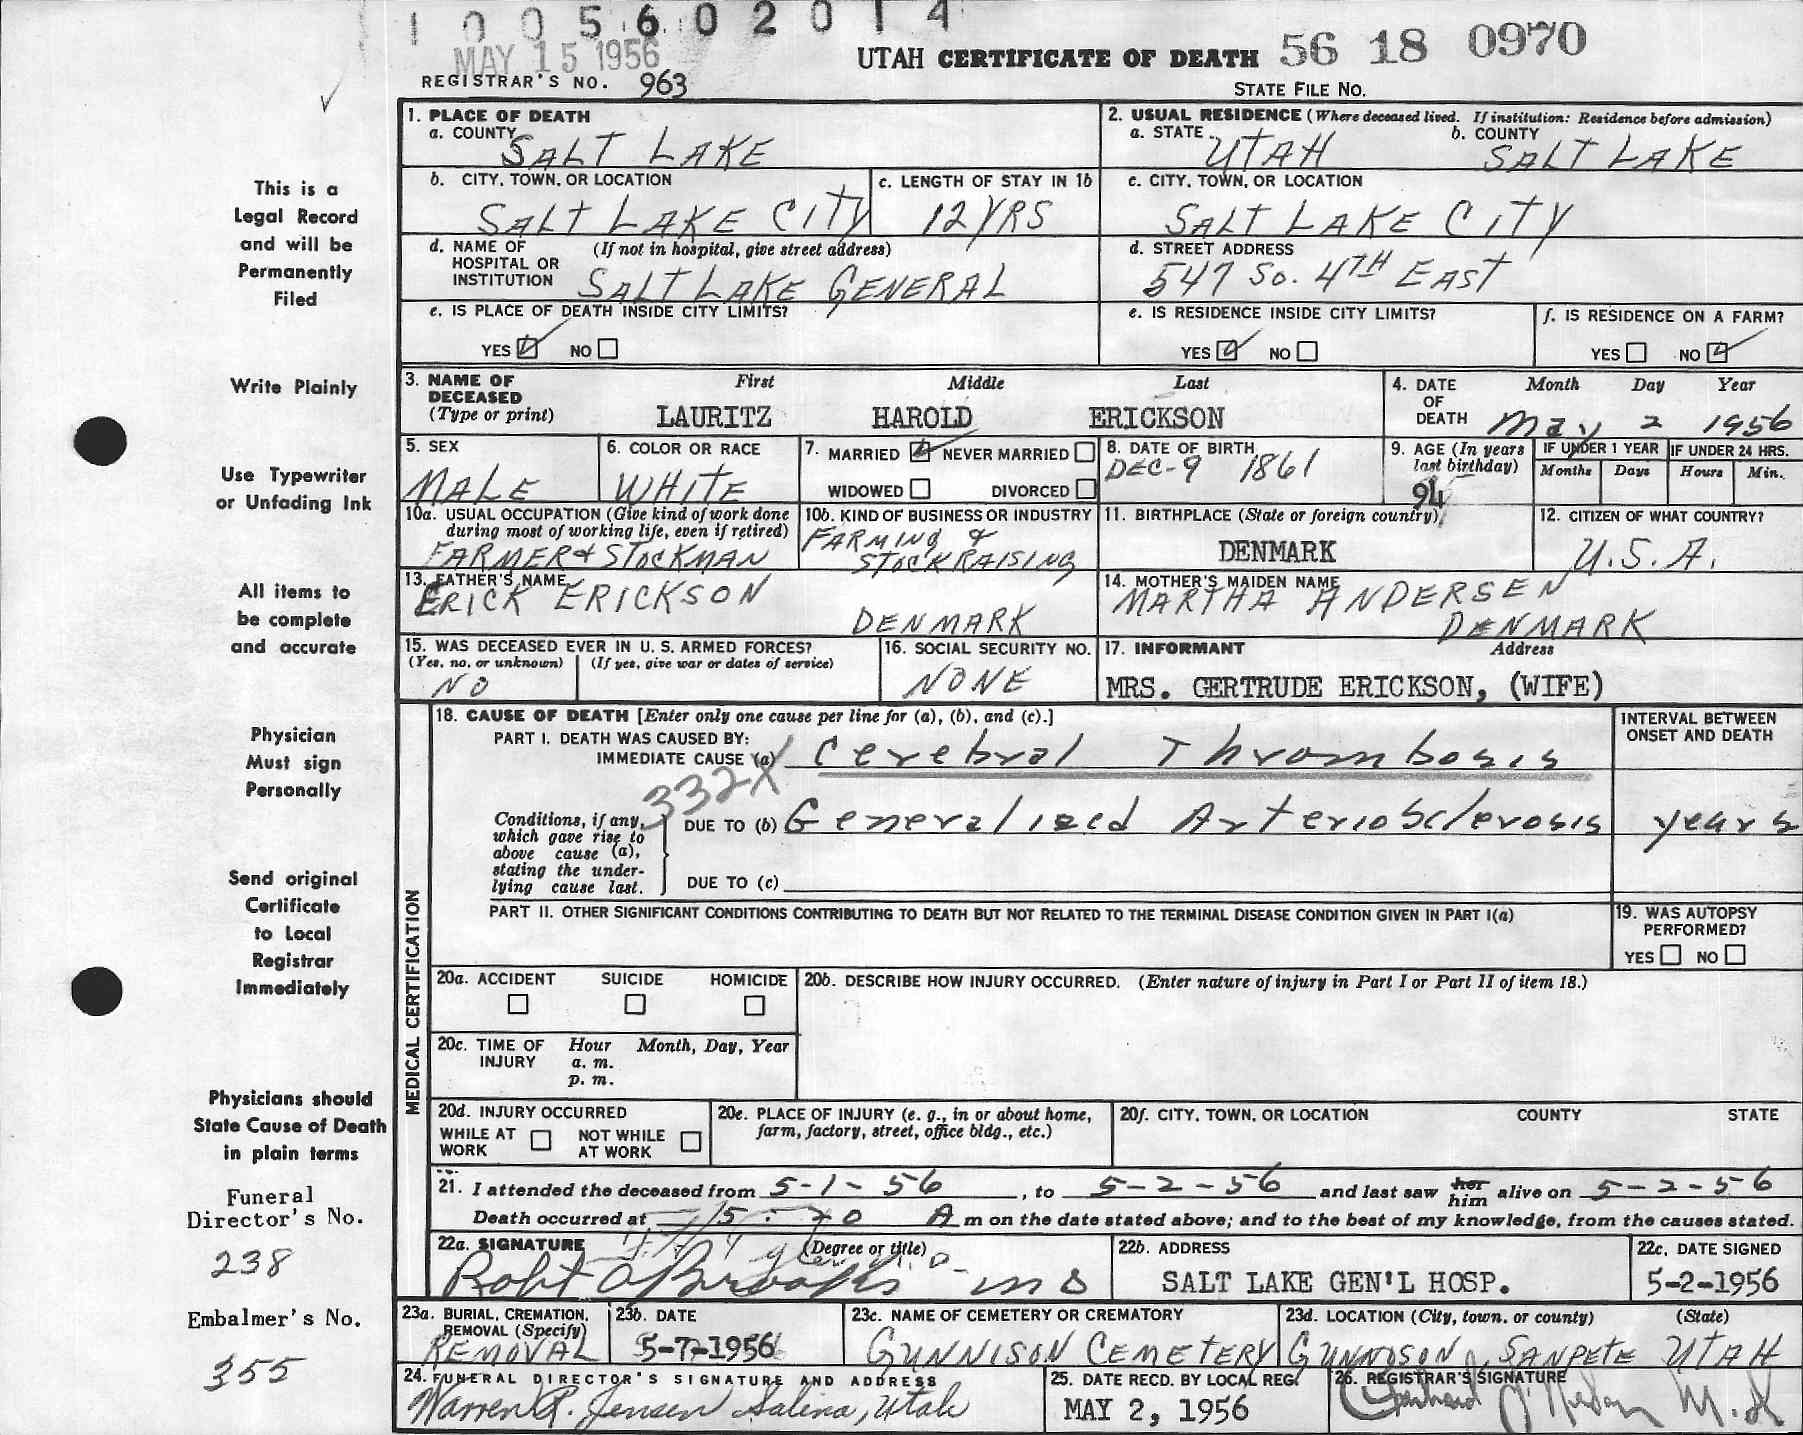 1 0 0 5 6 0 2 0 1 4
MAY 15 1956
UTAH CERTIFICATE OF DEATH 56 18 0970
REGISTRAR'S NO. 963
STATE FILE NO.
1. PLACE OF DEATH
a. COUNTY
SALT LAKE
2. USUAL RESIDENCE (Where deceased lived. If institution: Residence before admission)
a. STATE b. COUNTY
UTAH SALT LAKE
b. CITY, TOWN, OR LOCATION
SALT LAKE CITY
c. LENGTH OF STAY IN 1b
12 YRS
c. CITY, TOWN, OR LOCATION
SALT LAKE CITY
d. NAME OF (If not in hospital, give street address)
HOSPITAL OR
INSTITUTION SALT LAKE GENERAL
d. STREET ADDRESS
547 So. 4TH EAST
e. IS PLACE OF DEATH INSIDE CITY LIMITS?
YES NO
e. IS RESIDENCE INSIDE CITY LIMITS?
YES NO
f. IS RESIDENCE ON A FARM?
YES NO
3. NAME OF First Middle Last
DECEASED
(Type or print) LAURITZ HAROLD ERICKSON
4. DATE Month Day Year
OF
DEATH May 2 1956
5. SEX
MALE
6. COLOR OR RACE
WHITE
7. MARRIED NEVER MARRIED
WIDOWED DIVORCED
8. DATE OF BIRTH
DEC-9 1861
9. AGE (In years
last birthday)
94
IF UNDER 1 YEAR
Months Days
IF UNDER 24 HRS.
Hours Min.
10a. USUAL OCCUPATION (Give kind of work done
during most of working life, even if retired)
FARMER & STOCKMAN
10b. KIND OF BUSINESS OR INDUSTRY
FARMING &
STOCK RAISING
11. BIRTHPLACE (State or foreign country)
DENMARK
12. CITIZEN OF WHAT COUNTRY?
U.S.A.
13. FATHER'S NAME
ERICK ERICKSON
DENMARK
14. MOTHER'S MAIDEN NAME
MARTHA ANDERSEN
DENMARK
15. WAS DECEASED EVER IN U. S. ARMED FORCES?
(Yes, no, or unknown) (If yes, give war or dates of service)
NO
16. SOCIAL SECURITY NO.
NONE
17. INFORMANT Address
MRS. GERTRUDE ERICKSON, (WIFE)
MEDICAL CERTIFICATION
18. CAUSE OF DEATH [Enter only one cause per line for (a), (b), and (c).]
PART I. DEATH WAS CAUSED BY:
IMMEDIATE CAUSE (a) Cerebral Thrombosis
332X
Conditions, if any,
which gave rise to
above cause (a),
stating the under-
lying cause last.
DUE TO (b) Generalized Arteriosclerosis
DUE TO (c)
INTERVAL BETWEEN
ONSET AND DEATH
years
PART II. OTHER SIGNIFICANT CONDITIONS CONTRIBUTING TO DEATH BUT NOT RELATED TO THE TERMINAL DISEASE CONDITION GIVEN IN PART I(a)
19. WAS AUTOPSY
PERFORMED?
YES NO
20a. ACCIDENT SUICIDE HOMICIDE
20b. DESCRIBE HOW INJURY OCCURRED. (Enter nature of injury in Part I or Part II of item 18.)
20c. TIME OF Hour Month, Day, Year
INJURY a. m.
p. m.
20d. INJURY OCCURRED
WHILE AT NOT WHILE
WORK AT WORK
20e. PLACE OF INJURY (e. g., in or about home,
farm, factory, street, office bldg., etc.)
20f. CITY, TOWN, OR LOCATION COUNTY STATE
21. I attended the deceased from 5-1-56, to 5-2-56 and last saw her him alive on 5-2-56
Death occurred at A m on the date stated above; and to the best of my knowledge, from the causes stated.
22a. SIGNATURE (Degree or title)
Robt
22b. ADDRESS
SALT LAKE GEN'L HOSP.
22c. DATE SIGNED
5-2-1956
23a. BURIAL, CREMATION,
REMOVAL (Specify)
REMOVAL
23b. DATE
5-7-1956
23c. NAME OF CEMETERY OR CREMATORY
GUNNISON CEMETERY
23d. LOCATION (City, town, or county) (State)
GUNNISON, SANPETE UTAH
24. FUNERAL DIRECTOR'S SIGNATURE AND ADDRESS
Warren R. Jensen Salina, Utah
25. DATE RECD. BY LOCAL REG.
MAY 2, 1956
26. REGISTRAR'S SIGNATURE
This is a
Legal Record
and will be
Permanently
Filed
Write Plainly
Use Typewriter
or Unfading Ink
All items to
be complete
and accurate
Physician
Must sign
Personally
Send original
Certificate
to Local
Registrar
Immediately
Physicians should
State Cause of Death
in plain terms
Funeral
Director's No.
238
Embalmer's No.
355